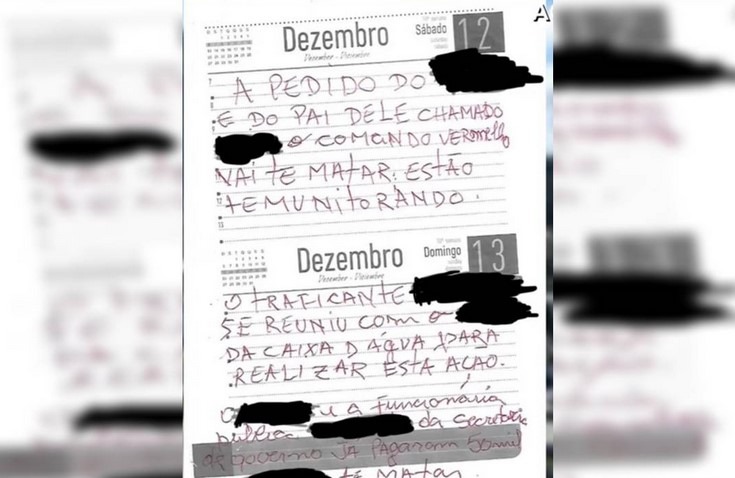 A
Dezembro
Sábado
12
A PEDIDO DO
E DO PAI DELE CHAMADO
O COMANDO VERMELHO
VAI TE MATAR. ESTÃO
TEMUNITORANDO.
Dezembro
Domingo
13
O TRAFICANTE
SE REUNIU COM O
DA CAIXA D ÁGUA PARA
REALIZAR ESTA ACAO.
O e a Funcionária
pública da Secretaria
de Governo JÁ PAGARAM 50mil
TE MATAR